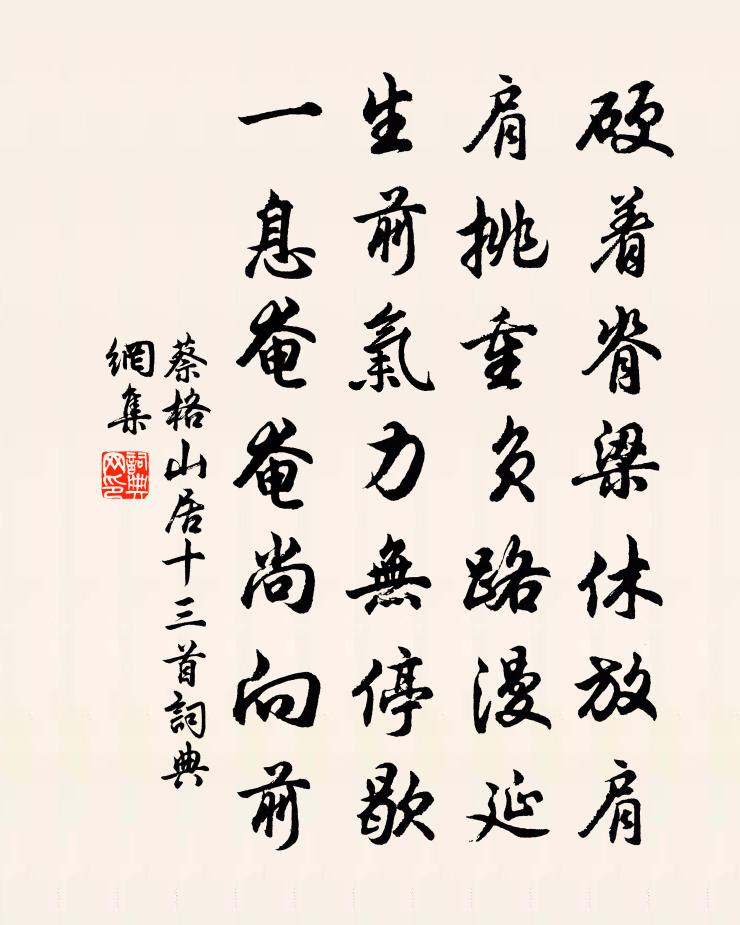 硬着脊梁休放肩
肩挑重负路漫延
生前氣力無停歇
一息奄奄尚向前
蔡格山居十三首詞典
網集
詞典
网印